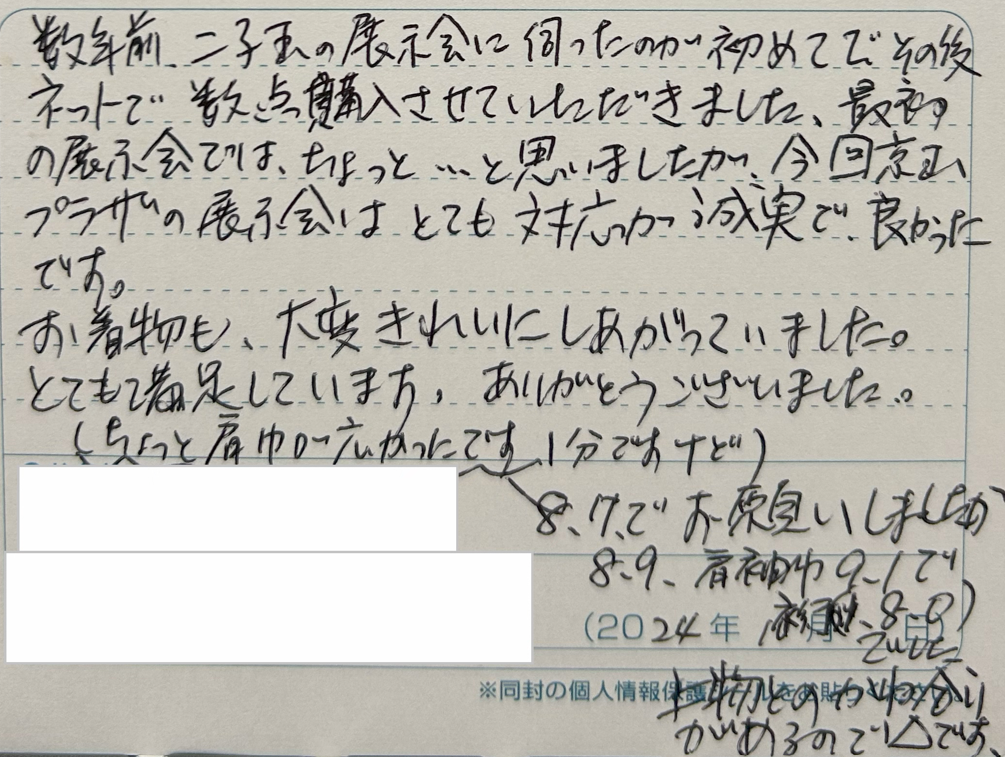 数年前、二子玉の展示会に伺ったのが初めてで、その後
ネットで数点購入させていたただきました、最初
の展示会では、ちょっと…と思いましたが、今回京王
プラザの展示会はとても対応が誠実で、良かった
です。
お着物も、大変きれいにしあがっていました。
とても満足しています。ありがとうございました。
(ちょっと肩巾が広かったです 1分ですけど)
8.7.でお願いしましたが
8.9、肩袖巾 9.1で
8.0)
(2024年 月 日)
でした
※同封の個人情報保護
とのかね合い
があるので△です、